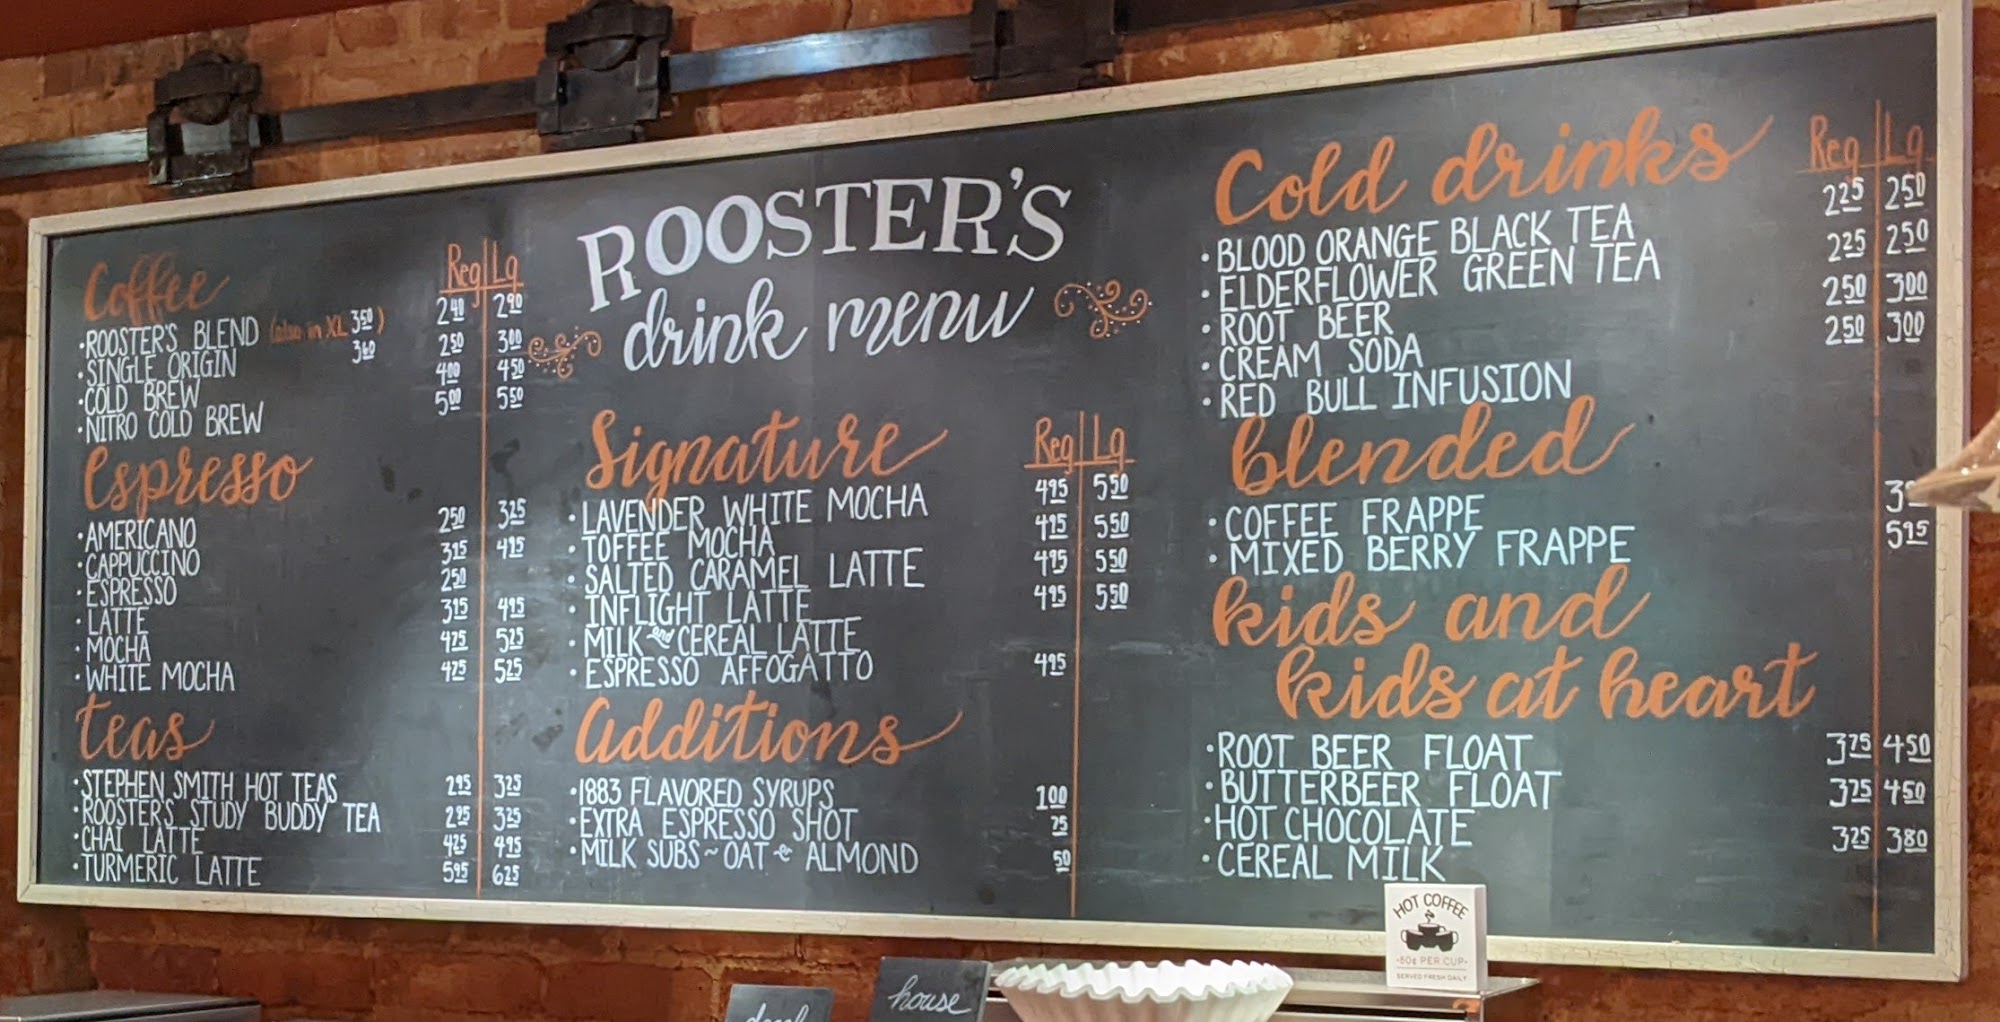 Coffee Reg Lg
·ROOSTER'S BLEND (also in XL 3.50) 2.40 2.90
·SINGLE ORIGIN 3.60 2.50 3.00
·COLD BREW 4.00 4.50
·NITRO COLD BREW 5.00 5.50
Espresso
·AMERICANO 2.50 3.25
·CAPPUCCINO 3.95 4.95
·ESPRESSO 2.50
·LATTE 3.95 4.95
·MOCHA 4.75 5.25
·WHITE MOCHA 4.75 5.25
teas
·STEPHEN SMITH HOT TEAS 2.95 3.25
·ROOSTER'S STUDY BUDDY TEA 2.95 3.25
·CHAI LATTE 4.25 4.95
·TURMERIC LATTE 5.95 6.25
ROOSTER'S
drink menu
Signature Reg Lg
·LAVENDER WHITE MOCHA 4.95 5.50
·TOFFEE MOCHA 4.95 5.50
·SALTED CARAMEL LATTE 4.95 5.50
·INFLIGHT LATTE 4.95 5.50
·MILK and CEREAL LATTE
·ESPRESSO AFFOGATTO 4.95
additions
·1883 FLAVORED SYRUPS 1.00
·EXTRA ESPRESSO SHOT 75
·MILK SUBS ~ OAT or ALMOND 50
Cold drinks Reg Lg
·BLOOD ORANGE BLACK TEA 2.25 2.50
·ELDERFLOWER GREEN TEA 2.25 2.50
·ROOT BEER 2.50 3.00
·CREAM SODA 2.50 3.00
·RED BULL INFUSION
blended
·COFFEE FRAPPE
·MIXED BERRY FRAPPE 5.95
kids and
kids at heart
·ROOT BEER FLOAT 3.75 4.50
·BUTTERBEER FLOAT 3.75 4.50
·HOT CHOCOLATE 3.25 3.80
·CEREAL MILK
HOT COFFEE
·50¢ PER CUP·
SERVED FRESH DAILY
house